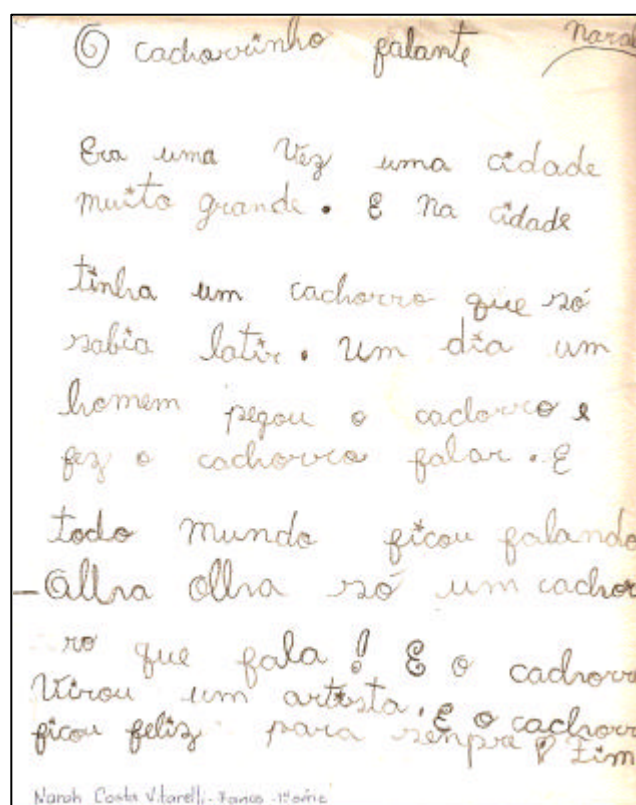 O cachorrinho falante Narah
Era uma Vez uma cidade
muito grande. E na cidade
tinha um cachorro que só
sabia latir. Um dia um
homem pegou o cachorro e
fez o cachorro falar. E
todo mundo ficou falando
— Olha Olha só um cachor
ro que fala! E o cachorro
Virou um artista. E o cachorro
ficou feliz para senpre Fim
Narah Costa Vitarelli - 7 anos - 1ª série